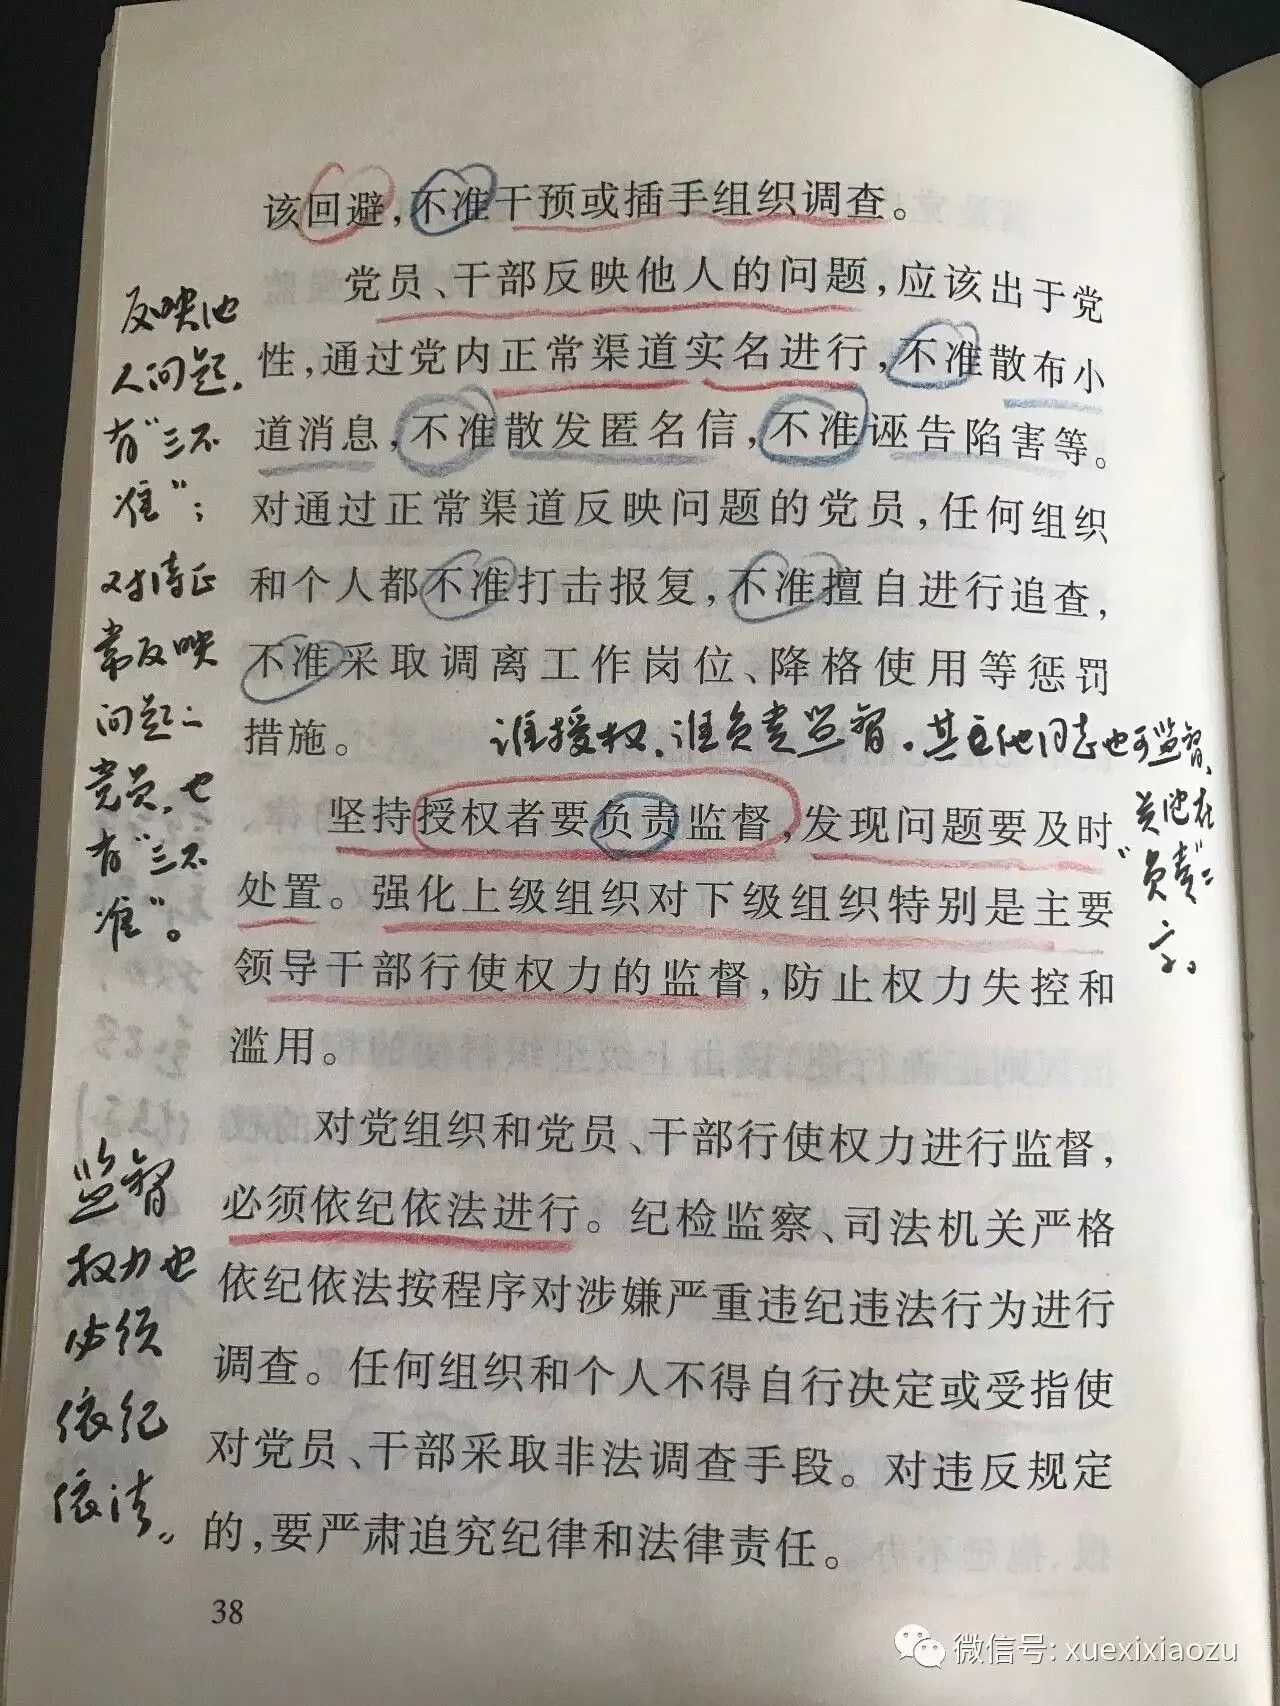 该回避,不准干预或插手组织调查。
党员、干部反映他人的问题,应该出于党
性,通过党内正常渠道实名进行,不准散布小
道消息,不准散发匿名信,不准诬告陷害等。
对通过正常渠道反映问题的党员,任何组织
和个人都不准打击报复,不准擅自进行追查,
不准采取调离工作岗位、降格使用等惩罚
措施。
坚持授权者要负责监督,发现问题要及时
处置。强化上级组织对下级组织特别是主要
领导干部行使权力的监督,防止权力失控和
滥用。
对党组织和党员、干部行使权力进行监督,
必须依纪依法进行。纪检监察、司法机关严格
依纪依法按程序对涉嫌严重违纪违法行为进行
调查。任何组织和个人不得自行决定或受指使
对党员、干部采取非法调查手段。对违反规定
的,要严肃追究纪律和法律责任。
38
反映他
人问题,
有“三不
准”;
对待正
常反映
问题之
党员,也
有“三不
准”。
谁授权,谁负责监督。其他同志也可监督,
关键在
“负责”二
字。
监督
权力也
必须
依纪
依法。
微信号: xuexixiaozu